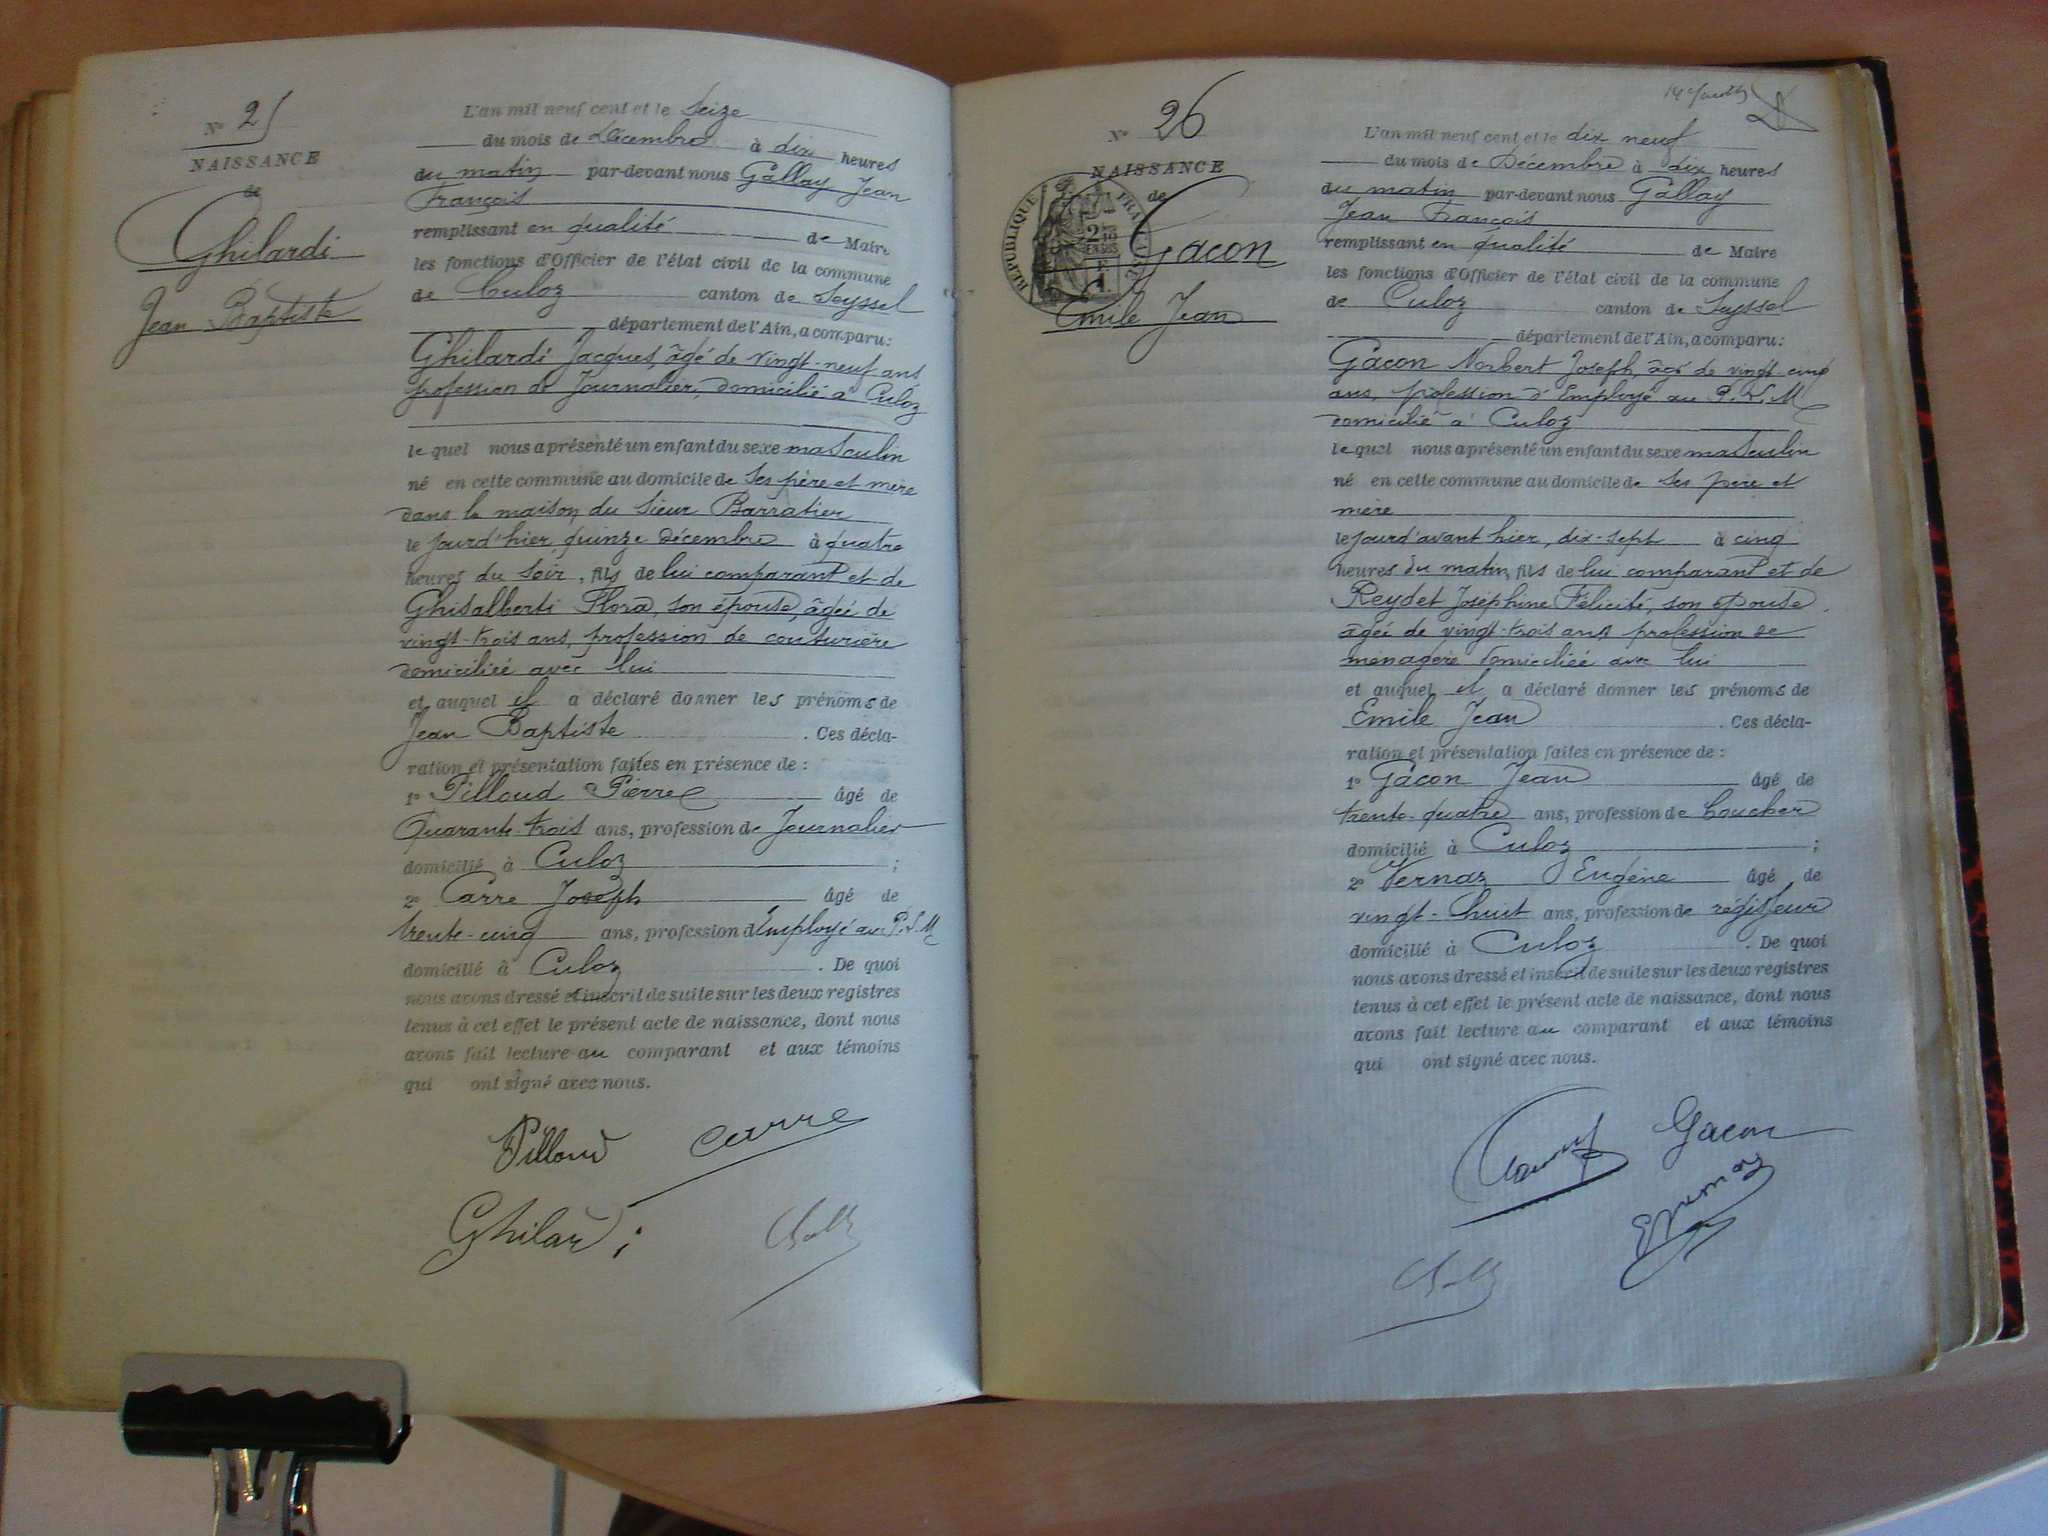 N° 25
NAISSANCE
de
Ghilardi
Jean Baptiste
L'an mil neuf cent et le Seize
du mois de Décembre à dix heures
du matin par-devant nous Gallay Jean
François
remplissant en qualité de Maire
les fonctions d'Officier de l'état civil de la commune
de Culoz canton de Seyssel
département de l'Ain, a comparu :
Ghilardi Jacques, âgé de vingt-neuf ans
profession de Journalier, domicilié à Culoz
le quel nous a présenté un enfant du sexe masculin
né en cette commune au domicile de ses père et mère
dans la maison du sieur Barratier
le jourd'hier quinze décembre à quatre
heures du soir, fils de lui comparant et de
Ghisalberti Flora, son épouse, âgée de
vingt-trois ans, profession de couturière
domiciliée avec lui
et auquel il a déclaré donner les prénoms de
Jean Baptiste . Ces décla-
ration et présentation faites en présence de :
1° Pilloud Pierre âgé de
Quarante-trois ans, profession de Journalier
domicilié à Culoz ;
2° Carre Joseph âgé de
trente-cinq ans, profession d'Employé au P.L.M
domicilié à Culoz . De quoi
nous avons dressé et inscrit de suite sur les deux registres
tenus à cet effet le présent acte de naissance, dont nous
avons fait lecture au comparant et aux témoins
qui ont signé avec nous.
Pilloud Carre
Ghilardi
N° 26
NAISSANCE
de
RÉPUBLIQUE FRANÇAISE
Gacon
Emile Jean
L'an mil neuf cent et le dix neuf
du mois de Décembre à dix heures
du matin par-devant nous Gallay
Jean François
remplissant en qualité de Maire
les fonctions d'Officier de l'état civil de la commune
de Culoz canton de Seyssel
département de l'Ain, a comparu :
Gacon Norbert Joseph, âgé de vingt-cinq
ans, profession d'Employé au P.L.M
domicilié à Culoz
le quel nous a présenté un enfant du sexe masculin
né en cette commune au domicile de ses père et
mère
le jourd'avant hier, dix-sept à cinq
heures du matin, fils de lui comparant et de
Reydet Joséphine Félicité, son épouse
âgée de vingt-trois ans profession de
ménagère domiciliée avec lui
et auquel il a déclaré donner les prénoms de
Emile Jean . Ces décla-
ration et présentation faites en présence de :
1° Gacon Jean âgé de
trente-quatre ans, profession de boucher
domicilié à Culoz ;
2° Vernaz Eugène âgé de
vingt-huit ans, profession de régisseur
domicilié à Culoz . De quoi
nous avons dressé et inscrit de suite sur les deux registres
tenus à cet effet le présent acte de naissance, dont nous
avons fait lecture au comparant et aux témoins
qui ont signé avec nous.
Gacon